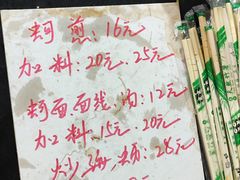 蚵煎：16元
加料：20元、25元
蚵面面线，肉：12元
加料 15元、20元
炒海蛎：28元